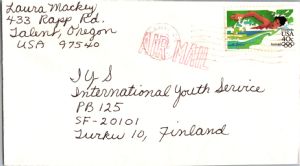 Laura Mackey
433 Rapp Rd.
Talent, Oregon
USA 97540
AIR MAIL
USA
40c
IYS
International Youth Service
PB 125
SF-20101
Turku 10, Finland